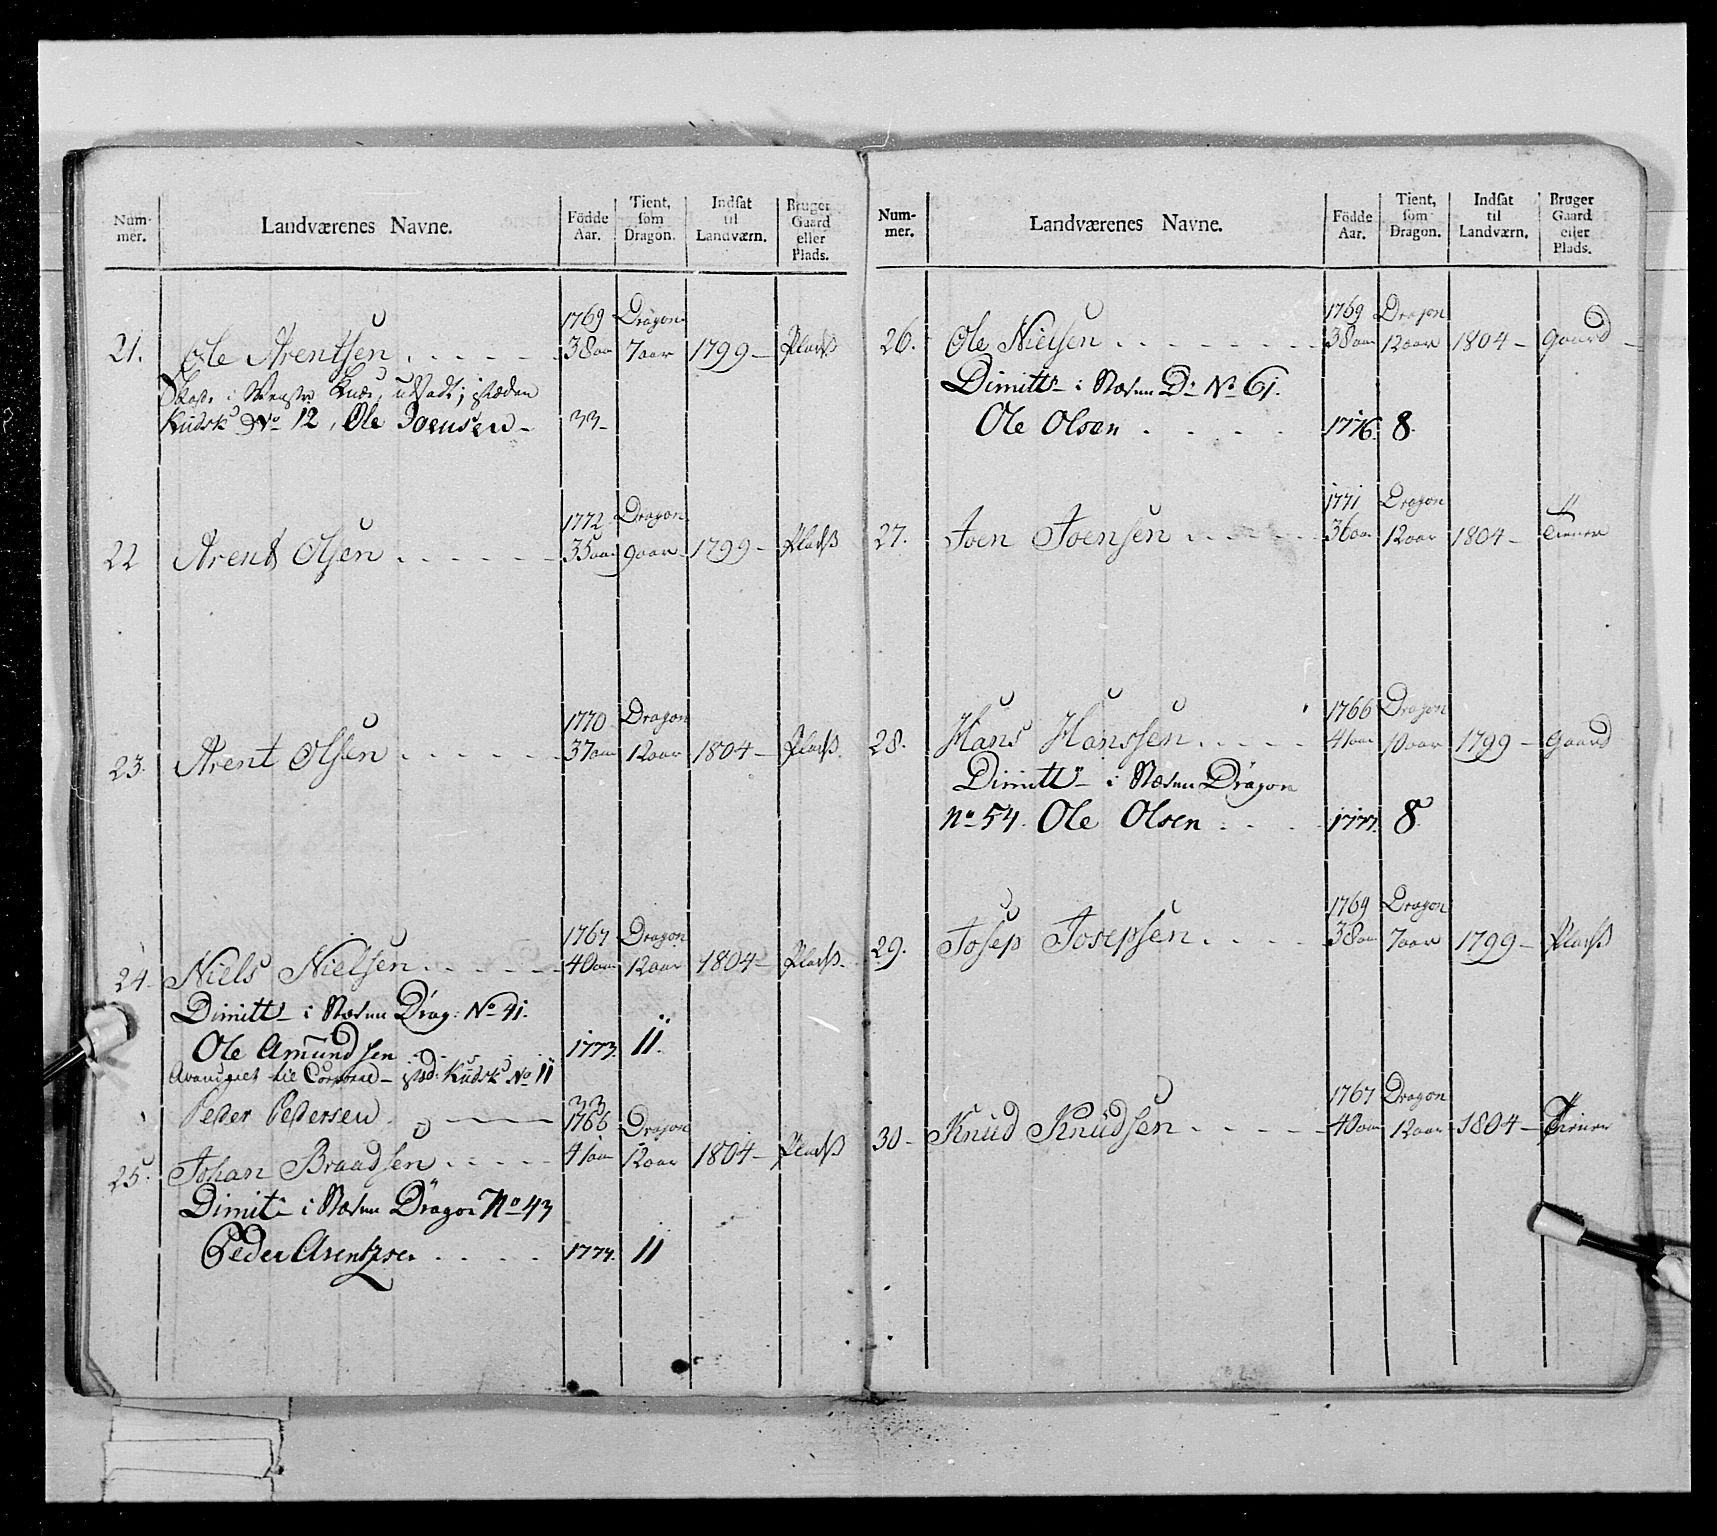 Num-
mer.
Landværenes Navne.
Födde
Aar.
Tient,
som
Dragon.
Indsat
til
Landværn.
Bruger
Gaard
eller
Plads.
1769 Dragon
21. Ole Arentsen . . . . . 38 aar 7 aar 1799 - Pladß
i Venstre Knæ, udsadt; isteden
Kudsk No 12, Ole Joensen - 33 -
1772 Dragon
22 Arent Olsen . . . . . 35 aar 9 aar 1799 - Pladß
1770 Dragon
23. Arent Olsen . . . . . 37 aar 12 aar 1804 - Pladß
1767 Dragon
24. Niels Nielsen . . . . . 40 aar 12 aar 1804 - Pladß
Dimitt i Stæden Drag: No 41.
Ole Amundsen . . 1773. 11.
Avanceret til Corporal - isted: Kudsk No 11
Peder Pedersen 33
1766 Dragon
25. Johan Braadsen . . . . . 41 aar 12 aar 1804 - Pladß
Dimit i Stæden Dragon No 43
Peder Arentzsen . . . . 1774. 11
Num-
mer.
Landværenes Navne.
Födde
Aar.
Tient,
som
Dragon.
Indsat
til
Landværn.
Bruger
Gaard
eller
Plads.
1769 Dragon
26. Ole Nielsen . . . . . . . 38 aar 12 aar 1804 - Gaard -
Dimitt i Stæden D No 61.
Ole Olsen . . . . 1776. 8.
1771 Dragon
27. Joen Joensen . . . . . 36 aar 12 aar 1804 - Tiener
1766 Dragon
28. Hans Hanssen . . . . . 41 aar 10 aar 1799 - Gaard
Dimitt i Stæden Dragon
No 54. Ole Olsen . . . . 1777. 8.
1769 Dragon
29. Josep Josepsen . . . . 38 aar 7 aar 1799 - Pladß
1767 Dragon
30 - Knud Knudsen . . . . . 40 aar 12 aar 1804 - Tiener